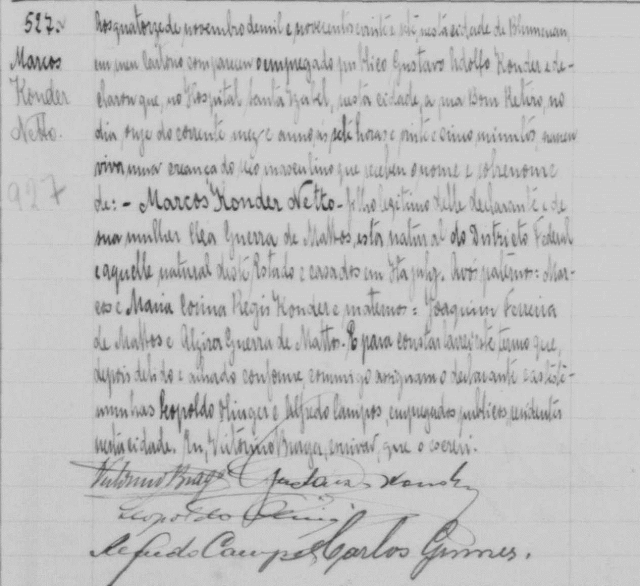 527.
Marcos
Konder
Netto.
927
Aos quatorze de novembro de mil e novecentos e vinte e sete nesta cidade de Blumenau,
em meu Cartorio compareceu o empregado publico Gustavo Adolfo Konder e de-
clarou que, no Hospital Santa Izabel, nesta cidade, a rua Bom Retiro, no
dia, onze do corrente mez e anno, ás sete horas e vinte e cinco minutos, nasceu
viva uma creança do sexo masculino que recebeu o nome e sobrenome
de: - Marcos Konder Netto - filho legitimo delle declarante e de
sua mulher Guerra de Mattos, esta natural do Districto Federal
e aquelle natural deste Estado e casados em Itajahy. Avós paterno: Mar-
cos e Maria Corina Regis Konder e materno: Joaquim Ferreira
de Mattos e Alzira Guerra de Mattos. E para constar lavrei este termo que,
depois de lido e achado conforme, commigo assignam o declarante e as teste-
munhas Leopoldo e Alfredo Campos, empregados publicos, residentes
nesta cidade. Eu, Victorino Braga, escrivão, que o escrevi.
Victorino Braga Gustavo Konder
Leopoldo
Alfredo Campos Carlos Gomes.